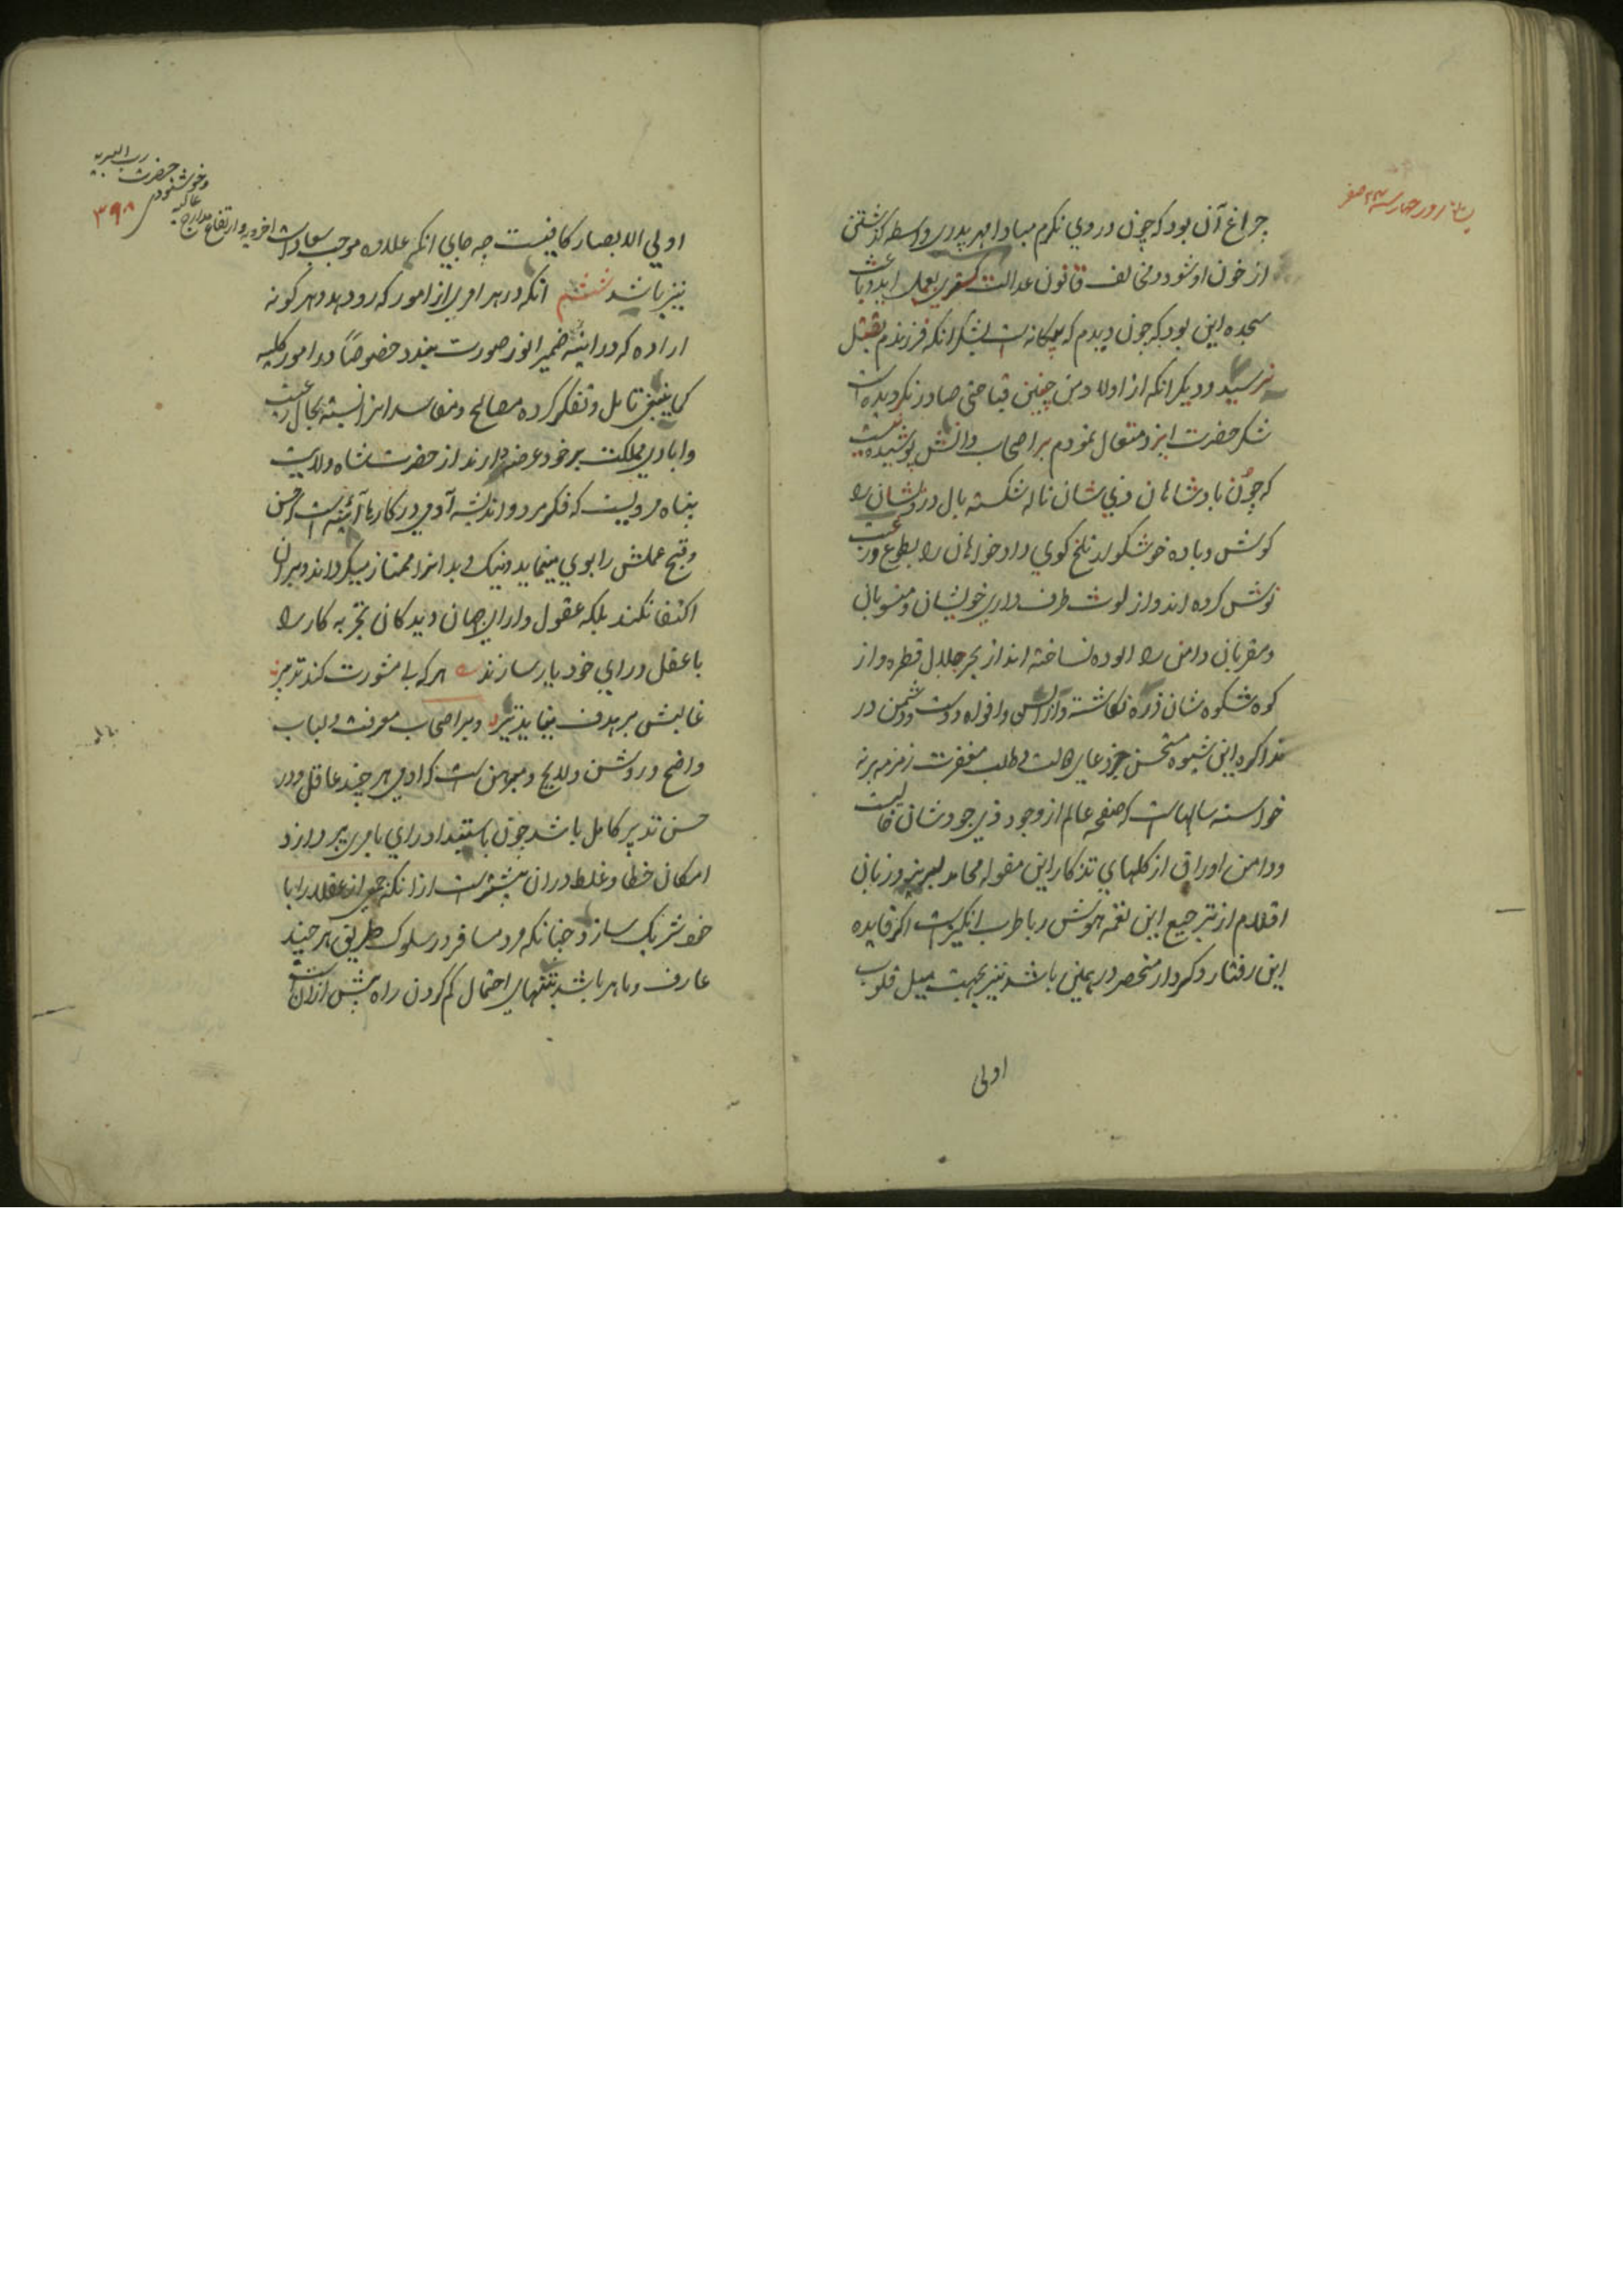 چراغ آن بود که چون در وی نکرم مبادا مهر پدری واسطه کذشتن
از خون او شود و مخالف قانون عدالت کستری بعمل اید و باعث
سجده این بود که چون دیدم که بیکانه است بشکر انکه فرزندم بقتل
نرسید و دیکر انکه از اولاد من چنین قباحتی صادر نکردیده است
شکر حضرت ایزد متعال نمودم بر اصحاب دانش پوشیده نیست
که چون بادشاهان ذی شان ناله شکسته بال درویشان را
کوش و باده خوشکوار تلخ کوی دادخواهان را بطوع و رغبت
نوش کرده اند و از لوث طرف داری خویشان و منسوبان
و مقربان دامن را الوده نساخته اند از بحر جلال قطره و از
کوه شکوه شان ذره نکاسته و السن و افواه دوست و دشمن در
تذاکره این شیوه مستحسن بجز دعای و طلب مغفرت زمزمه بر نه
خواسته سالهاست که صفحه عالم از وجود ذی جودشان خالیست
و دامن اوراق از کلهای تذکار این مقوله محامد لبریز و زبان
اقلام از ترجیع این نغمه هوش ربا طرب انکیز است اکر فایده
این رفتار و کردار منحصر در همین باشد نیز بجهت میل قلوب
اولی
اولی الابصار کافیست چه جای انکه علاوه موجب سعادات اخرویه و ارتفاع مدارج
عالیه
و خوشنودی
حضرت
رب البریه
۳۹۸
نیز باشد ششم انکه در هر امری از امور که رو دهد و هر کونه
اراده که در اینه ضمیر انور صورت بندد خصوصاً در امور کلیه
کما ینبغی تامل و تفکر کرده مصالح و مفاسد انرا نسبت بحال رعیت
و ابادی مملکت بر خود عرض دارند از حضرت شاه ولایت
پناه مرویست که فکر مرد و اندیشه آدمی در کارها آینه است که حسن
و قبح عملش را بوی مینماید و نیک و بد انرا ممتاز میکرداند و بران
اکتفا نکنند بلکه عقول و ارای جهان دیدکان تجربه کار را
با عقل و رای خود یار سازند هر که بی مشورت کند تدبیر
غالبش بر هدف نیاید تیر و بر اصحاب معرفت و لباب
واضح و روشن و لایح و مبرهن است که ادمی هر چند عاقل و در
حسن تدبیر کامل باشد چون باستبداد رای بامری پردازد
امکان خطا و غلط دران بیشتر است ازانکه جمعی از عقلا را با
خود شریک سازد چنانکه مرد مسافر در سلوک طریق هر چند
عارف و ماهر باشد بتنهای احتمال کم کردن راه بیش ازان است